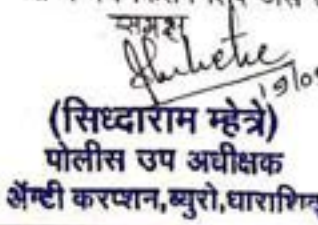 समक्ष
19/09
(सिध्दाराम म्हेत्रे)
पोलीस उप अधीक्षक
ॲन्टी करप्शन,ब्युरो,धाराशिव